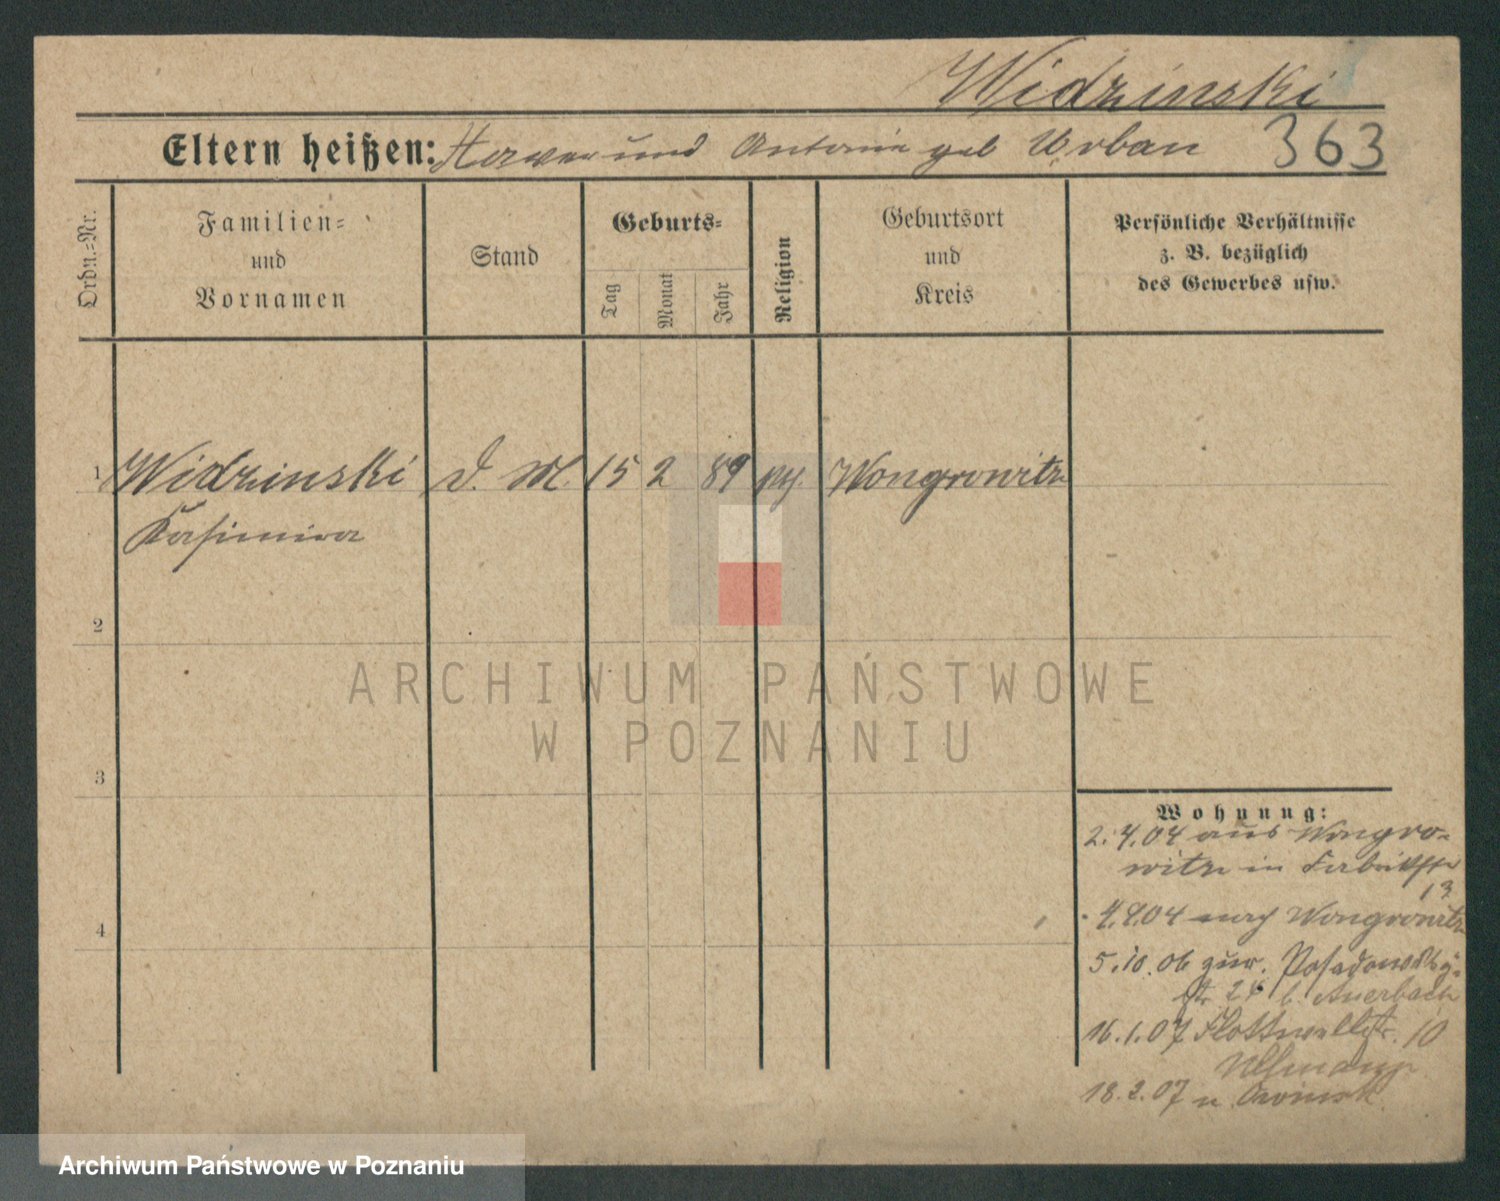 Widzinski
Eltern heißen: und Antonie geb Urban 363
Ordn.=Nr.
Familien=
und
Vornamen
Stand
Geburts=
Tag
Monat
Jahr
Religion
Geburtsort
und
Kreis
Persönliche Verhältnisse
z. B. bezüglich
des Gewerbes usw.
1 Widzinski D. M. 15 2 89 Wongrowitz
Kasimira
2
3
4
Wohnung:
2.4.04 aus Wongro-
witz in Fabrikstr
13
4.9.04 nach Wongrowitz
5.10.06 zur. Posadowsky-
str 28 b. Auerbach
16.1.07 Flottwellstr. 10
18.2.07 n.
ARCHIWUM PAŃSTWOWE
W POZNANIU
Archiwum Państwowe w Poznaniu